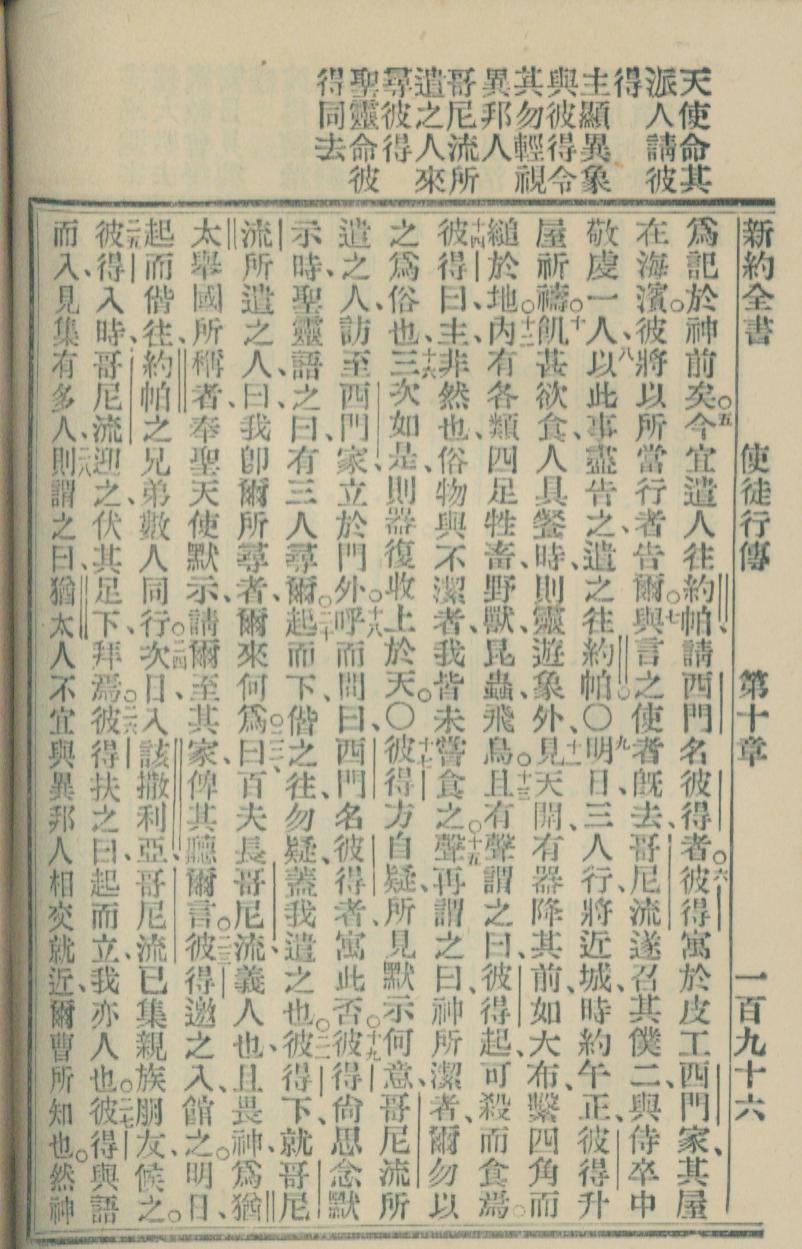 天使命其
派人請彼
得
主顯異象
與彼得令
其勿輕視
異邦人
哥尼流所
遣之人來
尋彼得
聖靈命彼
得同去
新約全書 使徒行傳 第十章 一百九十六
爲記於神前矣。五今宜遣人往約帕、請西門名彼得者。六彼得寓於皮工西門家、其屋
在海濱。彼將以所當行者告爾。七與言之使者旣去、哥尼流遂召其僕二、與侍卒中
敬虔一人、八以此事盡告之、遣之往約帕。〇九明日、三人行將近城、時約午正、彼得升
屋祈禱。十飢甚欲食、人具餐時、則靈遊象外、十一見天開、有器降其前、如大布、繫四角而
縋於地。十二內有各類四足牲畜、野獸、昆蟲、飛鳥。十三且有聲謂之曰、彼得起、可殺而食焉。
十四彼得曰、主、非然也、俗物與不潔者、我皆未嘗食之。十五聲再謂之曰、神所潔者、爾勿以
之爲俗也、十六三次如是、則器復收上於天。〇十七彼得方自疑、所見默示何意、哥尼流所
遣之人、訪至西門家、立於門外。十八呼而問曰、西門名彼得者寓此否。十九彼得尙思念默
示時、聖靈語之曰、有三人尋爾。二十起而下、偕之往、勿疑、蓋我遣之也。二一彼得下、就哥尼
流所遣之人曰、我卽爾所尋者、爾來何爲。二二曰、百夫長哥尼流、義人也、且畏神、爲猶
太舉國所稱者、奉聖天使默示、請爾至其家、俾其聽爾言。二三彼得邀之入館之。明日、
起而偕往、約帕之兄弟數人同行。二四次日、入該撒利亞、哥尼流已集親族朋友候之。
二五彼得入時、哥尼流迎之、伏其足下、拜焉。二六彼得扶之曰、起而立、我亦人也。二七彼得與語
而入、見集有多人、二八則謂之曰、猶太人不宜與異邦人相交就近、爾曹所知也。然神